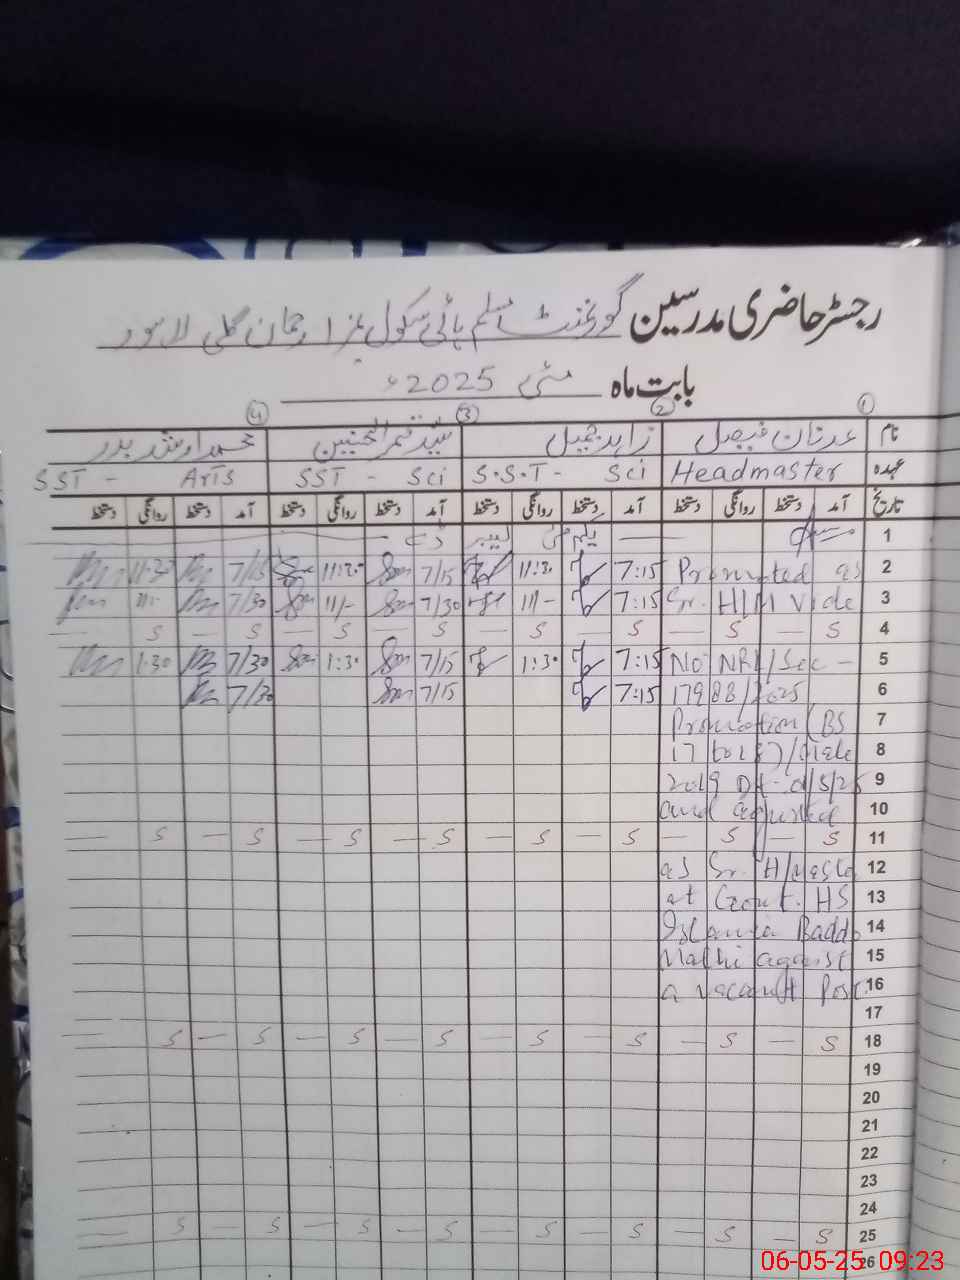 رجسٹر حاضری مدرسین گورنمنٹ مسلم ہائی سکول لاہور
بابت ماہ مئی 2025ء
① ② ③ ④
نام عدنان فیصل زاہد جمیل سید قمر الحسنین محمد ارشد بدر
عہدہ Headmaster S.S.T - Sci SST - Sci SST - Arts
تاریخ آمد دستخط روانگی دستخط آمد دستخط روانگی دستخط آمد دستخط روانگی دستخط آمد دستخط روانگی دستخط
1 یکم مئی لیبر ڈے
2 Promoted as 7:15 11:30 7/15 11:30 7/15 11:30
3 Sr. H/M Vide 7:15 11/- 7/30 11/- 7/30 11-
4 S — S — S — S — S — S — S — S —
5 No NRI/Sec - 7:15 1:30 7/15 1:30 7/30 1:30
6 17988/2025 7:15 7/15 7/30
7 Promotion (BS
8 17 to 18)/Male
9 2019 Dt.
10 and adjusted
11 S — S — S — S — S — S — S — S —
12 as Sr. H/Maste
13 at Govt. HS
14 Islamia Baddo
15 Malhi against
16 a vacant Post.
17
18 S — S — S — S — S — S — S — S —
19
20
21
22
23
24
25 S — S — S — S — S — S — S — S —
26
06-05-25 09:23